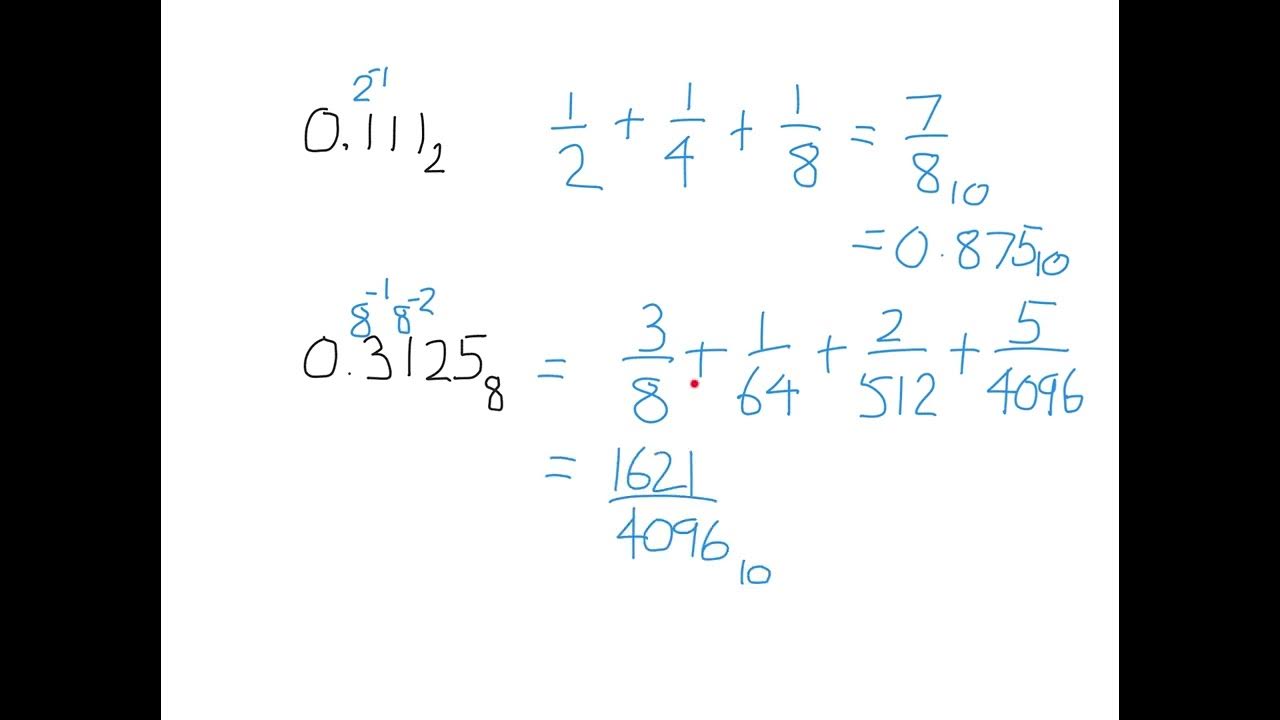 2⁻¹
0.111₂ 1/2 + 1/4 + 1/8 = 7/8₁₀
= 0.875₁₀
8⁻¹ 8⁻²
0.3125₈ = 3/8 + 1/64 + 2/512 + 5/4096
= 1621/4096₁₀